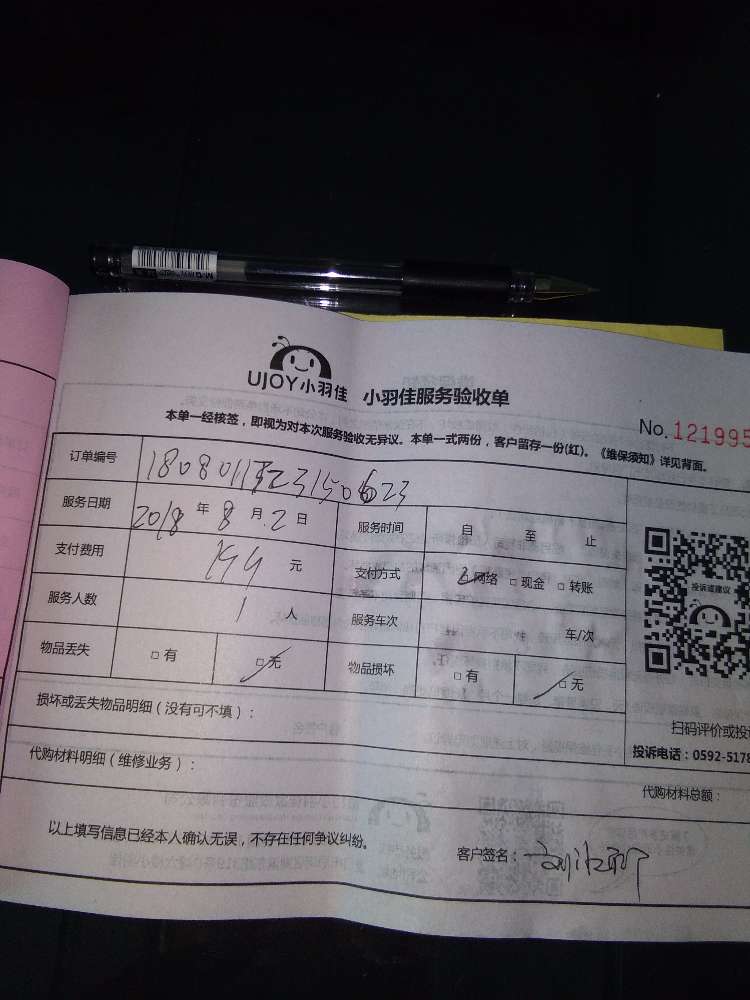 UJOY小羽佳 小羽佳服务验收单
No. 121995
本单一经核签，即视为对本次服务验收无异议。本单一式两份，客户留存一份(红)。《维保须知》详见背面。
订单编号
服务日期 2018 年 8 月 2 日 服务时间 自 至 止
支付费用 199 元 支付方式 □网络 □现金 □转账
服务人数 1 人 服务车次 车/次
物品丢失 □有 □无 物品损坏 □有 □无
投诉或建议
损坏或丢失物品明细（没有可不填）：
扫码评价或投
投诉电话：0592-5178
代购材料明细（维修业务）：
代购材料总额：
以上填写信息已经本人确认无误，不存在任何争议纠纷。
客户签名：